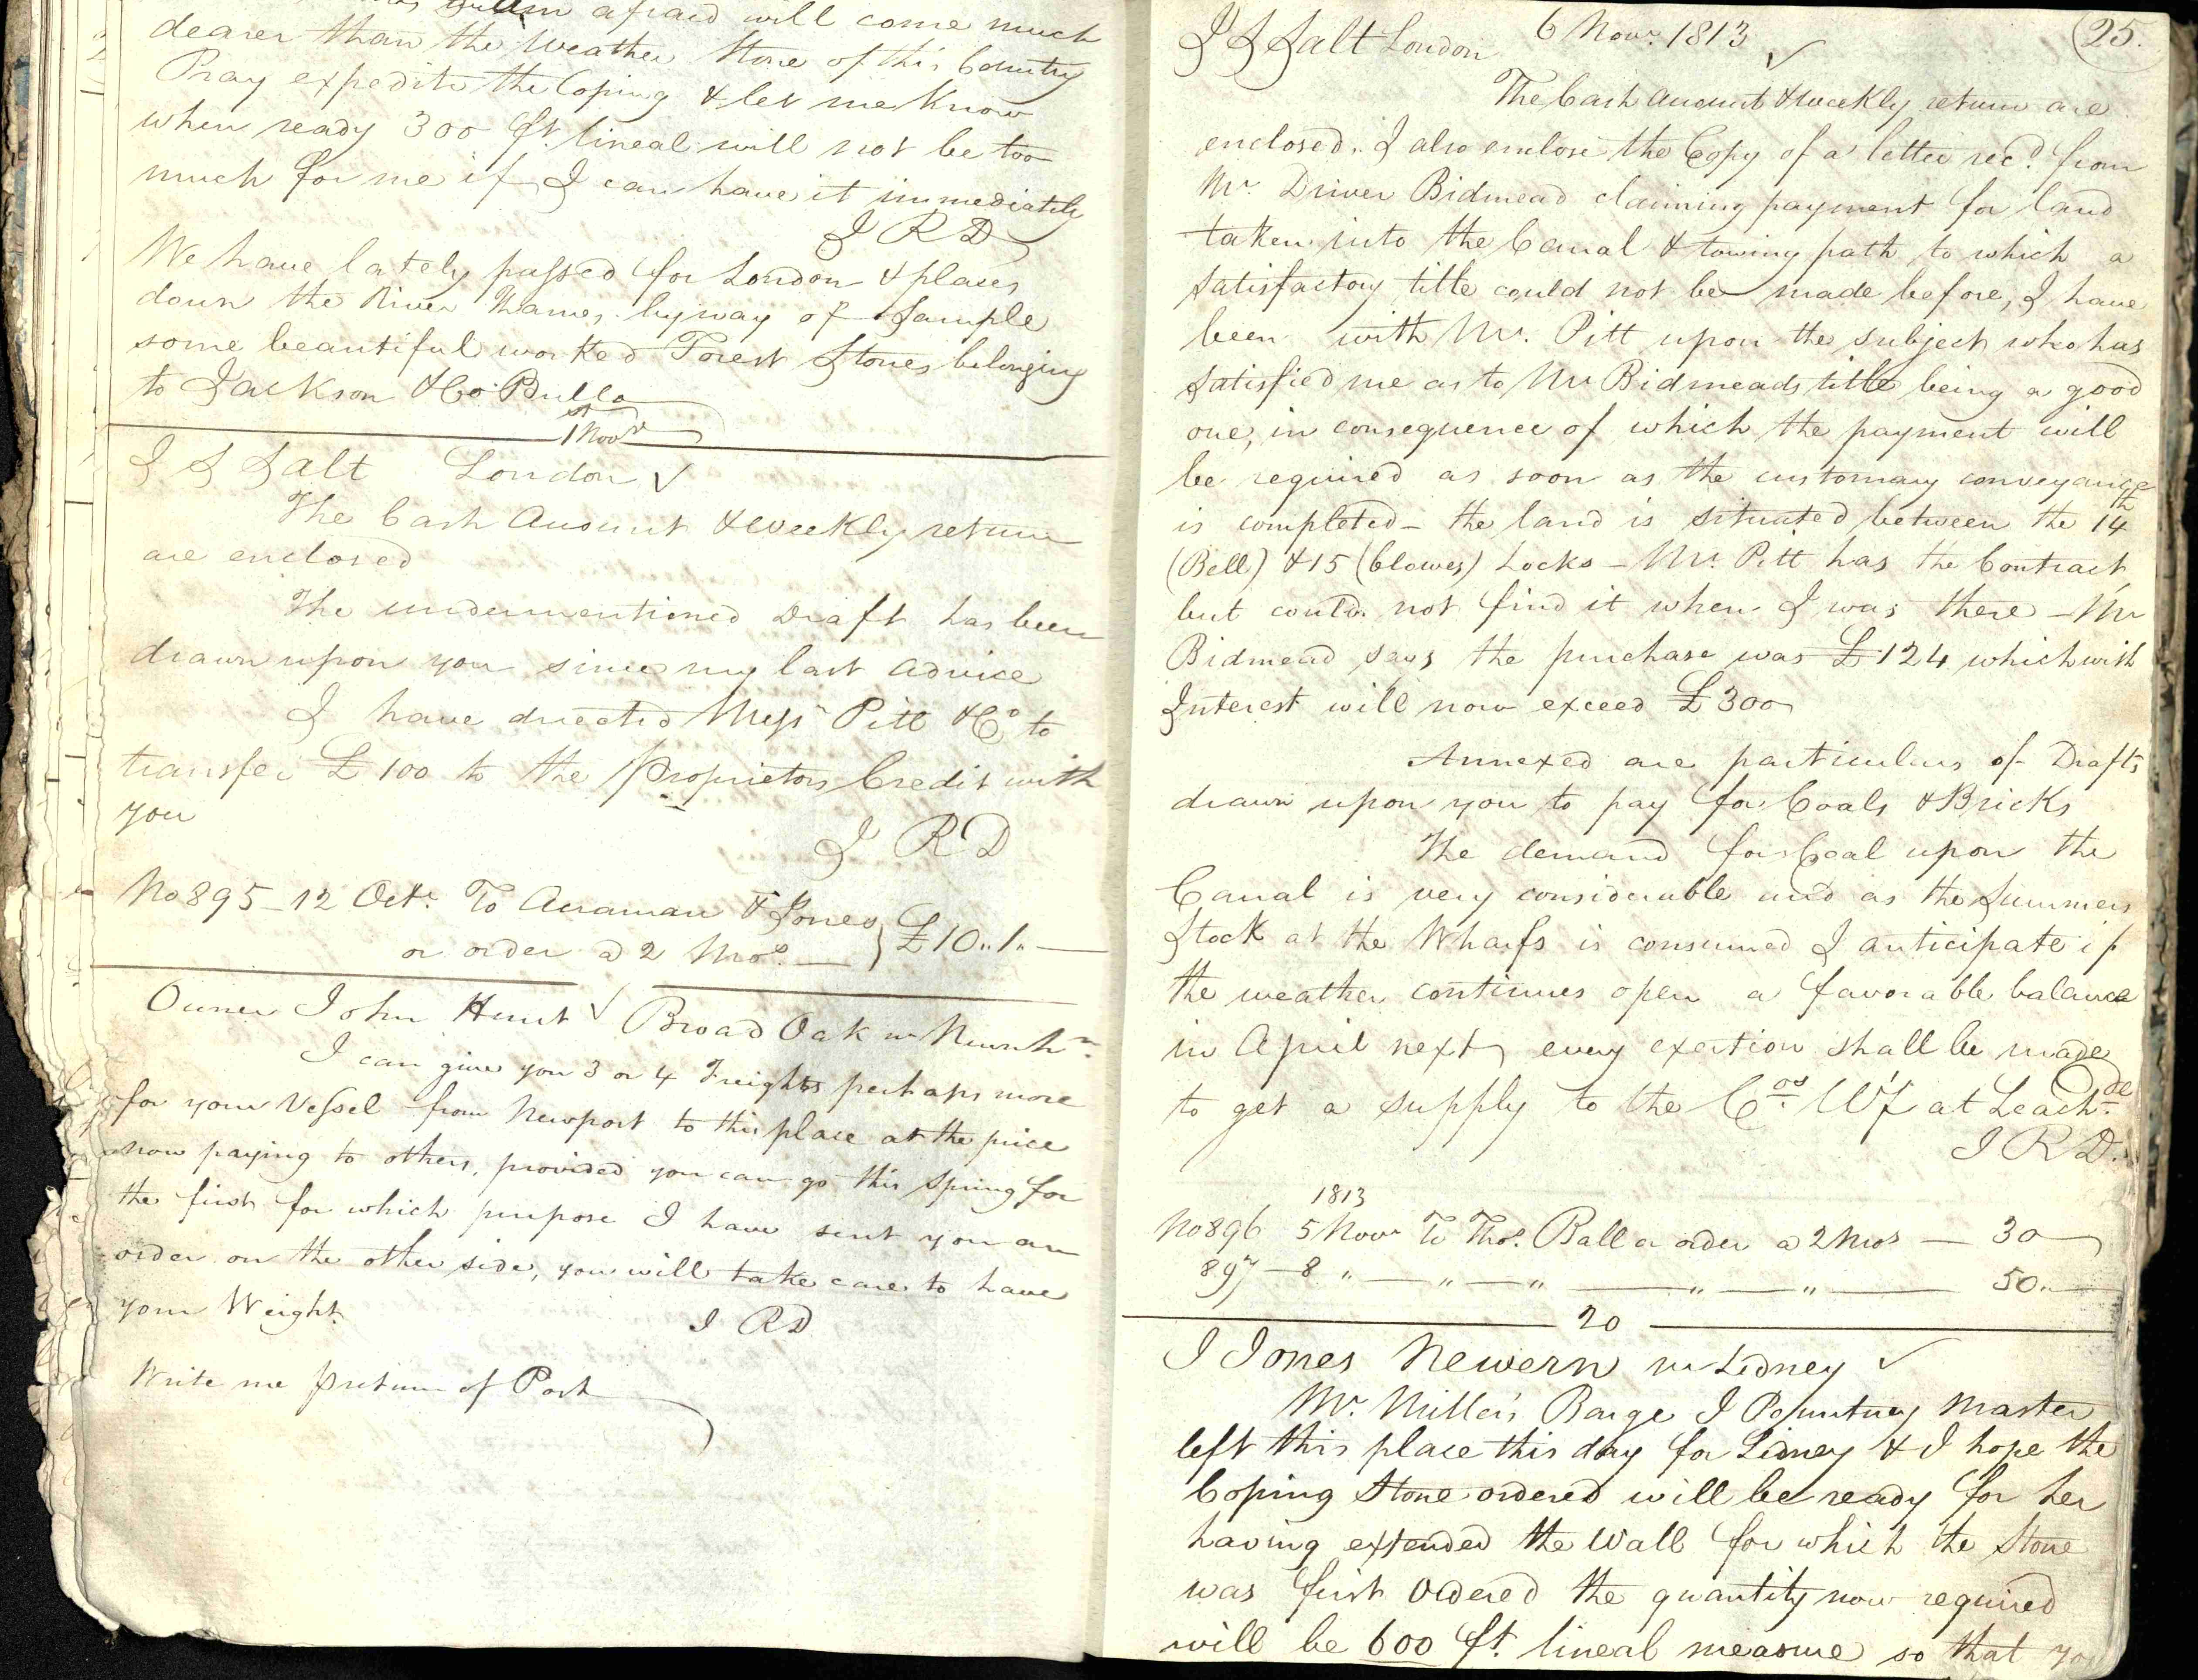 afraid will come much
dearer than the Weather Stone of this Country
Pray expedite the Coping & let me know
when ready 300 ft. lineal will not be too
much for me if I can have it immediately
J R D
We have lately passed for London & places
down the River Thames by way of Sample
some beautiful worked Forest Stones belonging
to Jackson & Co. Bullo
1st Novr
J S Salt London ✓
The Cash Account & Weekly return
are enclosed
The undermentioned Draft has been
drawn upon you since my last advice
I have directed Messrs Pitt & Co to
transfer £100 to the Proprietors Credit with
you
J R D
No 895 – 12 Octr. To Aaraman & Jones
or order a 2 Mos. — } £10..1..—
Owner John Hunt ✓ Broad Oak nr Newnhm.
I can give you 3 or 4 Freights perhaps more
for your Vessel from Newport to this place at the price
now paying to others, provided you can go this Spring for
the first for which purpose I have sent you an
order on the other side, you will take care to have
your Weight.
J R D
Write me p return of Post
25.
J S Salt London 6 Novr. 1813 ✓
The Cash Account & Weekly return are
enclosed. I also enclose the Copy of a letter recd. from
Mr. Driver Bidmead claiming payment for land
taken into the Canal & towing path to which a
satisfactory title could not be made before, I have
been with Mr. Pitt upon the subject who has
satisfied me as to Mr Bidmeads title being a good
one, in consequence of which the payment will
be required as soon as the customary conveyance
is completed – the land is situated between the 14th
(Bell) & 15 (Clowes) Locks – Mr. Pitt has the Contract
but could not find it when I was there – Mr
Bidmead says the purchase was £124 which with
Interest will now exceed £300
Annexed are particulars of Drafts
drawn upon you to pay for Coals & Bricks
The demand for Coal upon the
Canal is very considerable and as the Summers
Stock at the Wharfs is consumed I anticipate if
the weather continues open a favorable balance
in April next, every exertion shall be made
to get a supply to the Cos. Wf at Leachde.
J R D.
1813
No 896 5 Novr To Thos. Ball or order a 2 Mos — 30
897 – 8 " — " — " — " — " — 50..—
20
J Jones Newern nr Lidney ✓
Mr. Miller's Barge J Pountney Master
left this place this day for Lidney & I hope the
Coping Stone ordered will be ready for her
having extended the Wall for which the Stone
was first ordered the quantity now required
will be 600 ft. lineal measure so that you